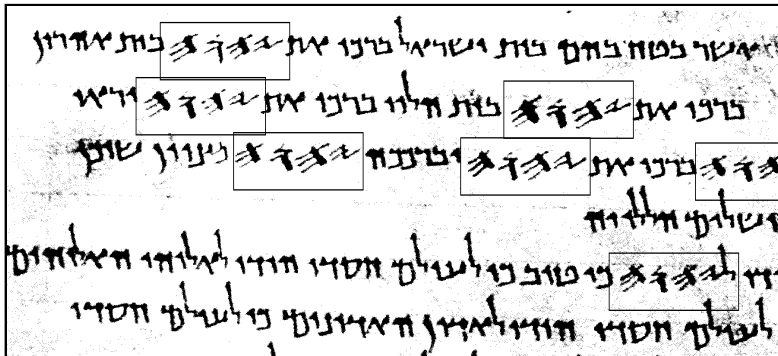 אשר בטח בהם בית ישראל ברכו את 𐤉𐤄𐤅𐤄 בית אהרון
ברכו את 𐤉𐤄𐤅𐤄 בית הלוי ברכו את 𐤉𐤄𐤅𐤄 יראי
ברכו את 𐤉𐤄𐤅𐤄 יברככה 𐤉𐤄𐤅𐤄 מציון שוכן
ושלים הללויה
ל𐤉𐤄𐤅𐤄 כי טוב כי לעולם חסדו הודו לאלוהי האלוהים
לעולם חסדו הודו לאדון האדונים כי לעולם חסדו